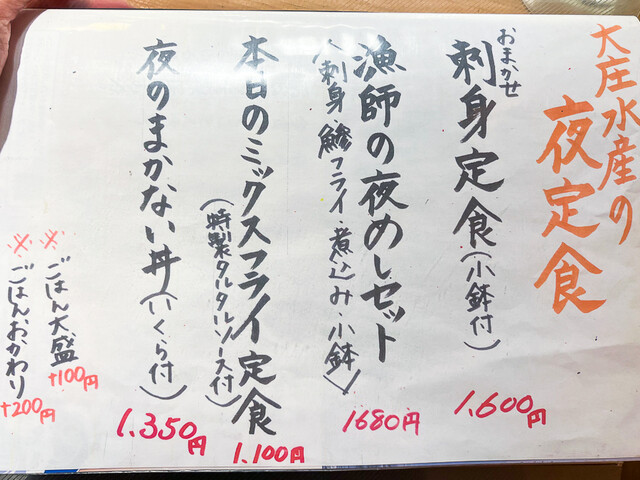 大庄水産の
夜定食
おまかせ
刺身定食(小鉢付)
1.600円
漁師の夜めしセット
(刺身 鯵フライ 煮込み 小鉢)
1680円
本日のミックスフライ定食
(特製タルタルソース付)
1.100円
夜のまかない丼(いくら付)
1.350円
※ごはん大盛
+100円
※ごはんおかわり
+200円